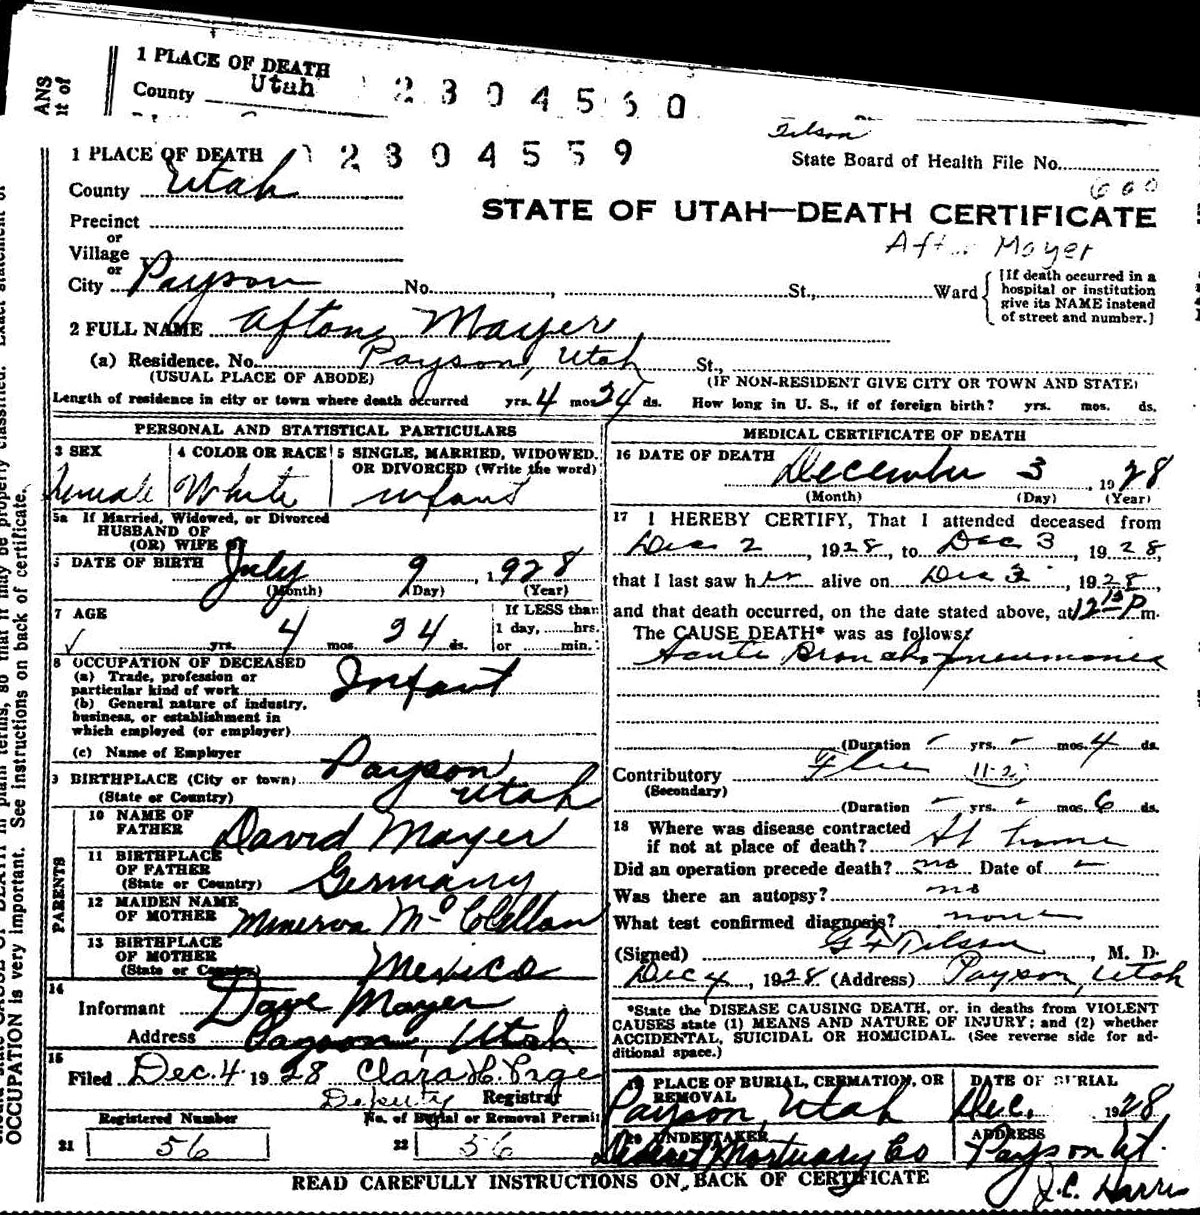 1 PLACE OF DEATH
County Utah 2 3 0 4 5 6 0
ANS
1 PLACE OF DEATH 2 3 0 4 5 5 9
State Board of Health File No.
County Utah
STATE OF UTAH—DEATH CERTIFICATE
Precinct
or
Village
Mayer
or
City Payson No. , St., Ward
[If death occurred in a
hospital or institution
give its NAME instead
of street and number.]
2 FULL NAME Afton Mayer
(a) Residence. No. Payson, Utah St.,
(USUAL PLACE OF ABODE) (IF NON-RESIDENT GIVE CITY OR TOWN AND STATE)
Length of residence in city or town where death occurred yrs. 4 mos. 24 ds. How long in U. S., if of foreign birth? yrs. mos. ds.
PERSONAL AND STATISTICAL PARTICULARS
3 SEX 4 COLOR OR RACE 5 SINGLE, MARRIED, WIDOWED.
OR DIVORCED (Write the word)
Female White infant
5a If Married, Widowed, or Divorced
HUSBAND OF
(OR) WIFE OF
DATE OF BIRTH July 9, 1928
(Month) (Day) (Year)
7 AGE If LESS than
1 day, hrs.
yrs. 4 mos. 24 ds. or min.
8 OCCUPATION OF DECEASED
(a) Trade, profession or
particular kind of work Infant
(b) General nature of industry,
business, or establishment in
which employed (or employer)
(c) Name of Employer
9 BIRTHPLACE (City or town) Payson
(State or Country) Utah
PARENTS
10 NAME OF
FATHER David Mayer
11 BIRTHPLACE
OF FATHER
(State or Country) Germany
12 MAIDEN NAME
OF MOTHER Minerva McClellan
13 BIRTHPLACE
OF MOTHER
(State or Country) Mexico
14
Informant Dave Mayer
Address Payson, Utah
15
Filed Dec. 4 1928 Clara H. Page
Deputy Registrar
Registered Number No. of Burial or Removal Permit
21 56 22 56
MEDICAL CERTIFICATE OF DEATH
16 DATE OF DEATH December 3, 1928
(Month) (Day) (Year)
17 I HEREBY CERTIFY, That I attended deceased from
Dec 2, 1928, to Dec 3, 1928,
that I last saw her alive on Dec 3, 1928,
and that death occurred, on the date stated above, at 12 15 P m.
The CAUSE DEATH* was as follows:
Acute Broncho pneumonia
(Duration - yrs. - mos. 4 ds.
Contributory Flu
(Secondary)
(Duration - yrs. - mos. 6 ds.
18 Where was disease contracted
if not at place of death? At home
Did an operation precede death? no Date of -
Was there an autopsy? no
What test confirmed diagnosis? none
(Signed) Tilson, M. D.
Dec 4, 1928 (Address) Payson, Utah
*State the DISEASE CAUSING DEATH, or, in deaths from VIOLENT
CAUSES state (1) MEANS AND NATURE OF INJURY; and (2) whether
ACCIDENTAL, SUICIDAL OR HOMICIDAL. (See reverse side for ad-
ditional space.)
19 PLACE OF BURIAL, CREMATION, OR
REMOVAL
Payson, Utah
DATE OF BURIAL
Dec. 1928
20 UNDERTAKER
Deseret Mortuary Co
ADDRESS
Payson Ut.
J.C. Harris
READ CAREFULLY INSTRUCTIONS ON BACK OF CERTIFICATE
OCCUPATION is very important. See instructions on back of certificate.